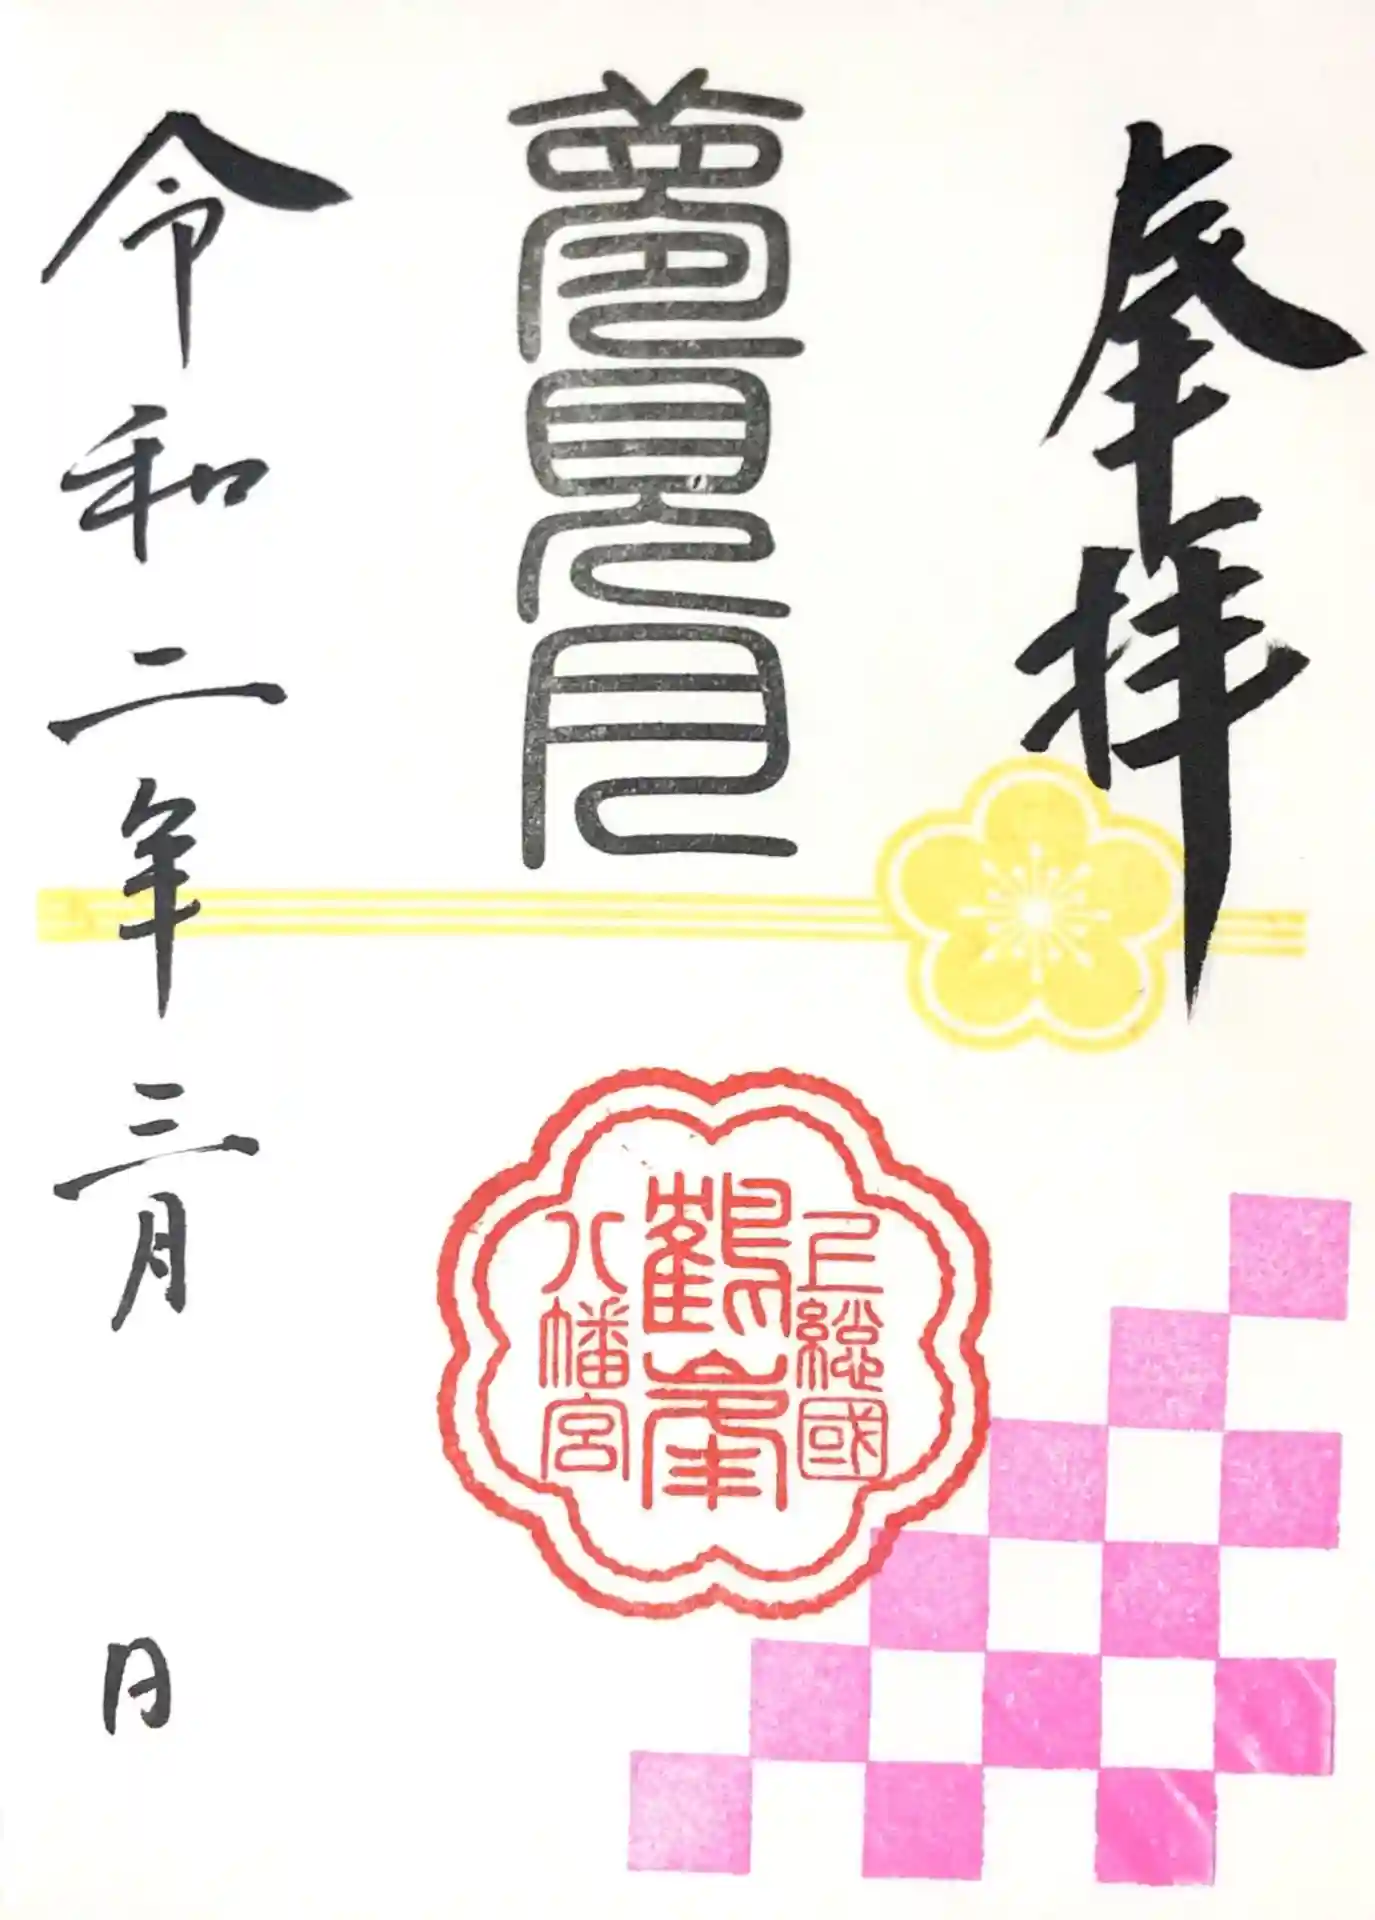 奉拝
夢見月
上総國
鶴峯
八幡宮
令和二年三月 日